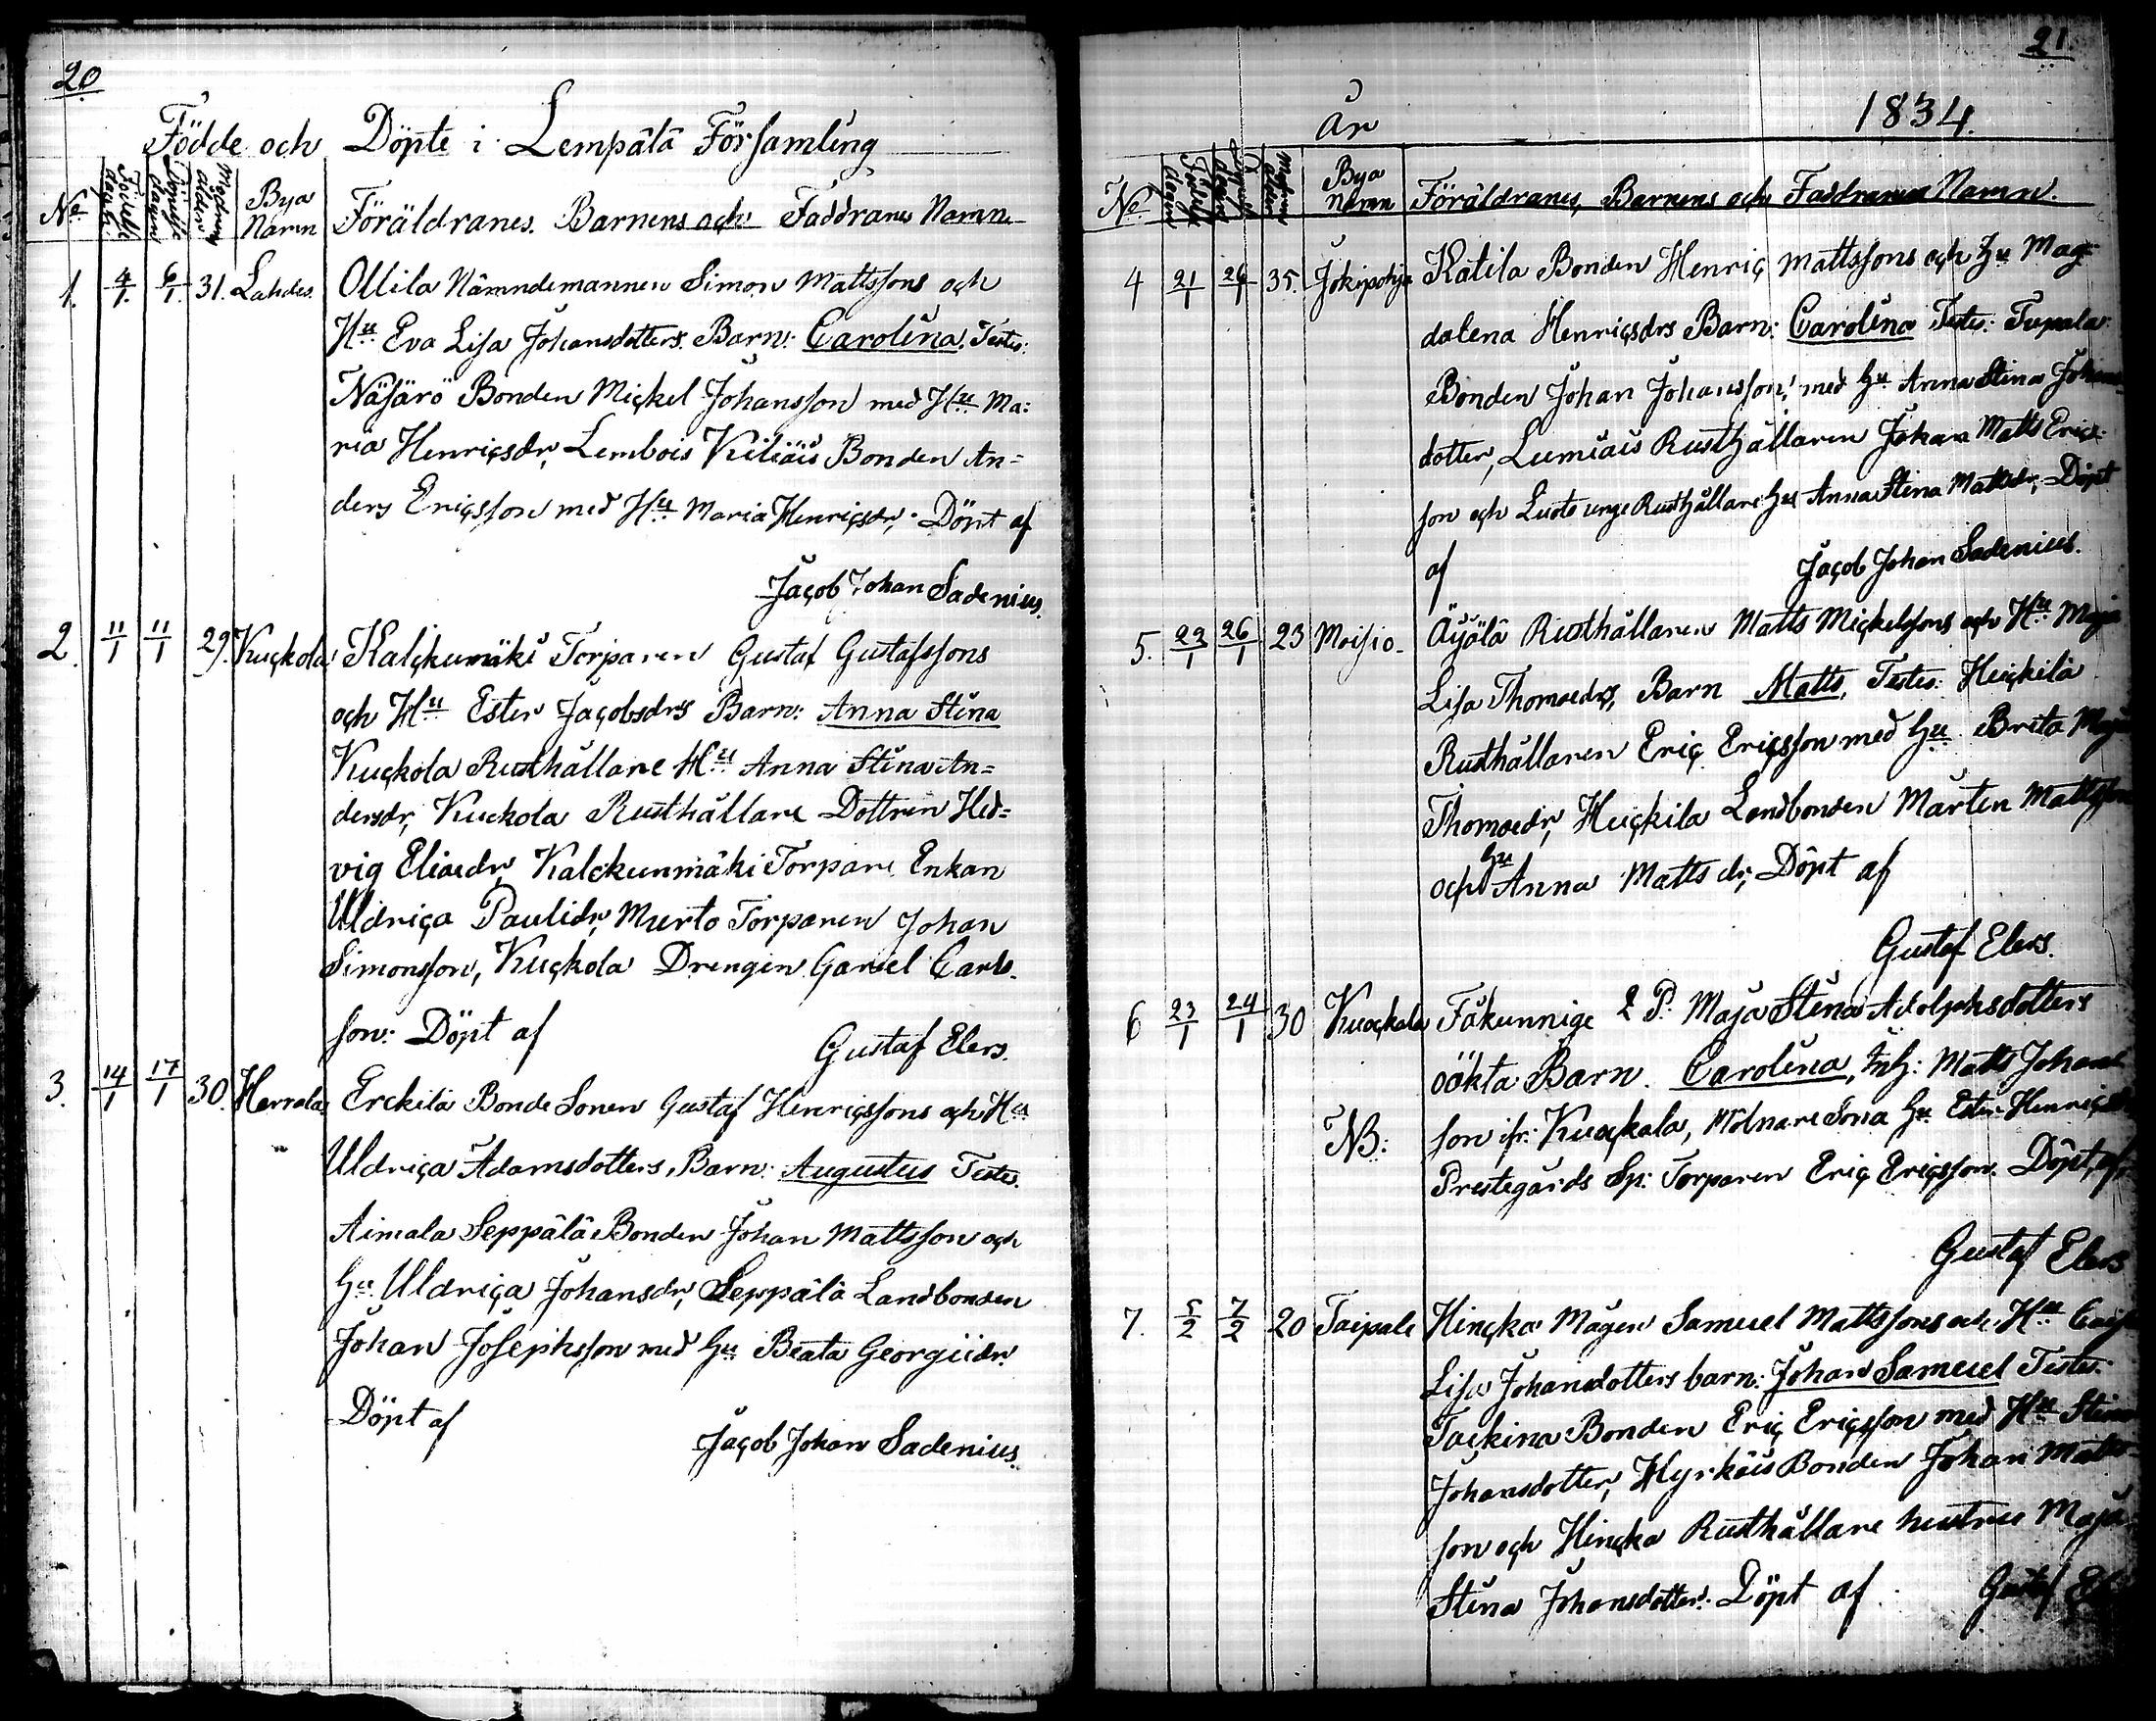 20
Födde och Döpte i Lempälä Församling
No. Födelse dagen Döpelse dagen Modrens ålder Bya Namn Föräldranes, Barnens och Faddranes Namn
1. 4/1. 6/1. 31. Lahdes. Ollila Nämndemannen Simon Mattssons och
Hu Eva Lisa Johansdotters Barn: Carolina. Testes:
Näsärö Bonden Mickel Johansson med Hu Ma:
ria Henricsdr, Lembois Kiliäis Bonden An=
ders Ericsson med Hu Maria Henricsdr. Döpt af
Jacob Johan Sadenius.
2. 11/1 11/1 29. Kuckola Kalckunmäki Torparen Gustaf Gustafssons
och Hu Ester Jacobsdrs Barn: Anna Stina
Kuckola Rusthållare Hu Anna Stina An=
dersdr, Kuckola Rusthållare Dottren Hed=
vig Eliaedr, Kalckunmäki Torpare Enkan
Uldrica Paulidr, Murto Torparen Johan
Simonsson, Kuckola Drengen Gabriel Carls
son: Döpt af Gustaf Elers.
3. 14/1 17/1 30. Herrala Erckilä Bonde Sonen Gustaf Henricssons och Hu
Uldrica Adamsdotters, Barn: Augustus Testes.
Aimala Seppälä Bonden Johan Mattsson och
Hu Uldrica Johansdr, Seppälä Landbonden
Johan Josephsson med Hu Beata Georgiidr.
Döpt af
Jacob Johan Sadenius.
21
År 1834.
No. Födelse dagen Döpelse dagen Modrens ålder Bya Namn Föräldranes, Barnens och Faddranes Namn.
4 21/1 26/1 35. Jokipohja Katila Bonden Henric Mattssons och Hu Mag=
dalena Henricsdrs Barn: Carolina Testes: Tupala
Bonden Johan Johansson, med Hu Anna Stina Johans
dotter, Lumiais Rusthållaren Johan Matts Erics
son och unge Rusthållare Hu Anna Stina Mattsdr, Döpt
af Jacob Johan Sadenius.
5. 23/1 26/1 23 Moisio. Äijälä Rusthållaren Matts Mickelssons och Hu Maja
Lisa Thomaedrs, Barn Matts, Testes: Heickilä
Rusthållaren Eric Ericsson med Hu Breta Maja
Thomaedr, Heickilä Landbonden Mårten Mattsson
och Hu Anna Matts dr, Döpt af
Gustaf Elers.
6 23/1 24/1 30 Kuockala Fåkunnige Q P. Maja Stina Adolphsdotters
oäkta Barn. Carolina, Inh: Matts Johans
NB: son ifr: Kuockala, Mölnare Sona Hu Ester Henricsdr
Prestegårds Sp: Torparen Eric Ericsson. Döpt af
Gustaf Elers
7. 5/2 7/2 20 Taipale Hincka Mågen Samuel Mattssons och Hu Caisa
Lisa Johansdotters barn: Johan Samuel Testes:
Tackina Bonden Eric Ericsson med Hu Stina
Johansdotter, Hyrkäis Bonden Johan Matts
son och Hincka Rusthållare hustru Maja
Stina Johansdotter. Döpt af Gustaf